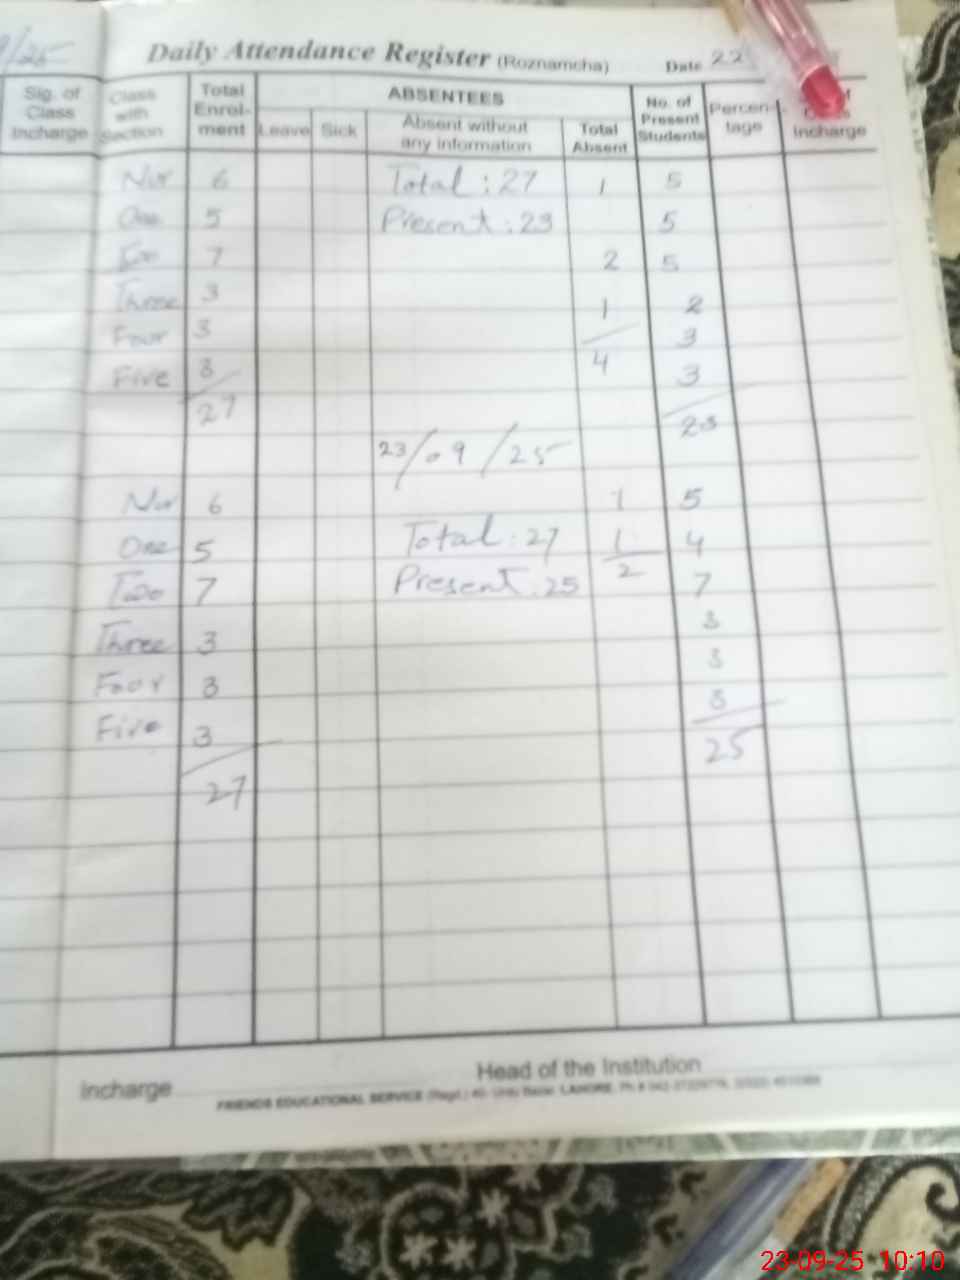 9/25
Daily Attendance Register (Roznamcha) Date 22
Sig. of Class Incharge
Class with Section
Total Enrol-ment
ABSENTEES
Leave
Sick
Absent without any information
Total Absent
No. of Present Students
Percen-tage
Incharge
Nur 6 Total : 27 1 5
One 5 Present : 23 5
Two 7 2 5
Three 3 1 2
Four 3 3
Five 3 4 3
27 23
23/09/25
Nur 6 1 5
One 5 Total : 27 1 4
Two 7 Present : 25 2 7
Three 3 3
Four 3 3
Five 3 3
27 25
Incharge
Head of the Institution
FRIENDS EDUCATIONAL SERVICE (Regd.) 40- Urdu Bazar LAHORE.
23-09-25 10:10